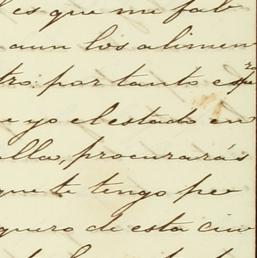 les que me fal
aun los alimen
tro: por tanto espero
e yo el estado en
alla, procurarás
que te tengo pe
quero de esta ciu